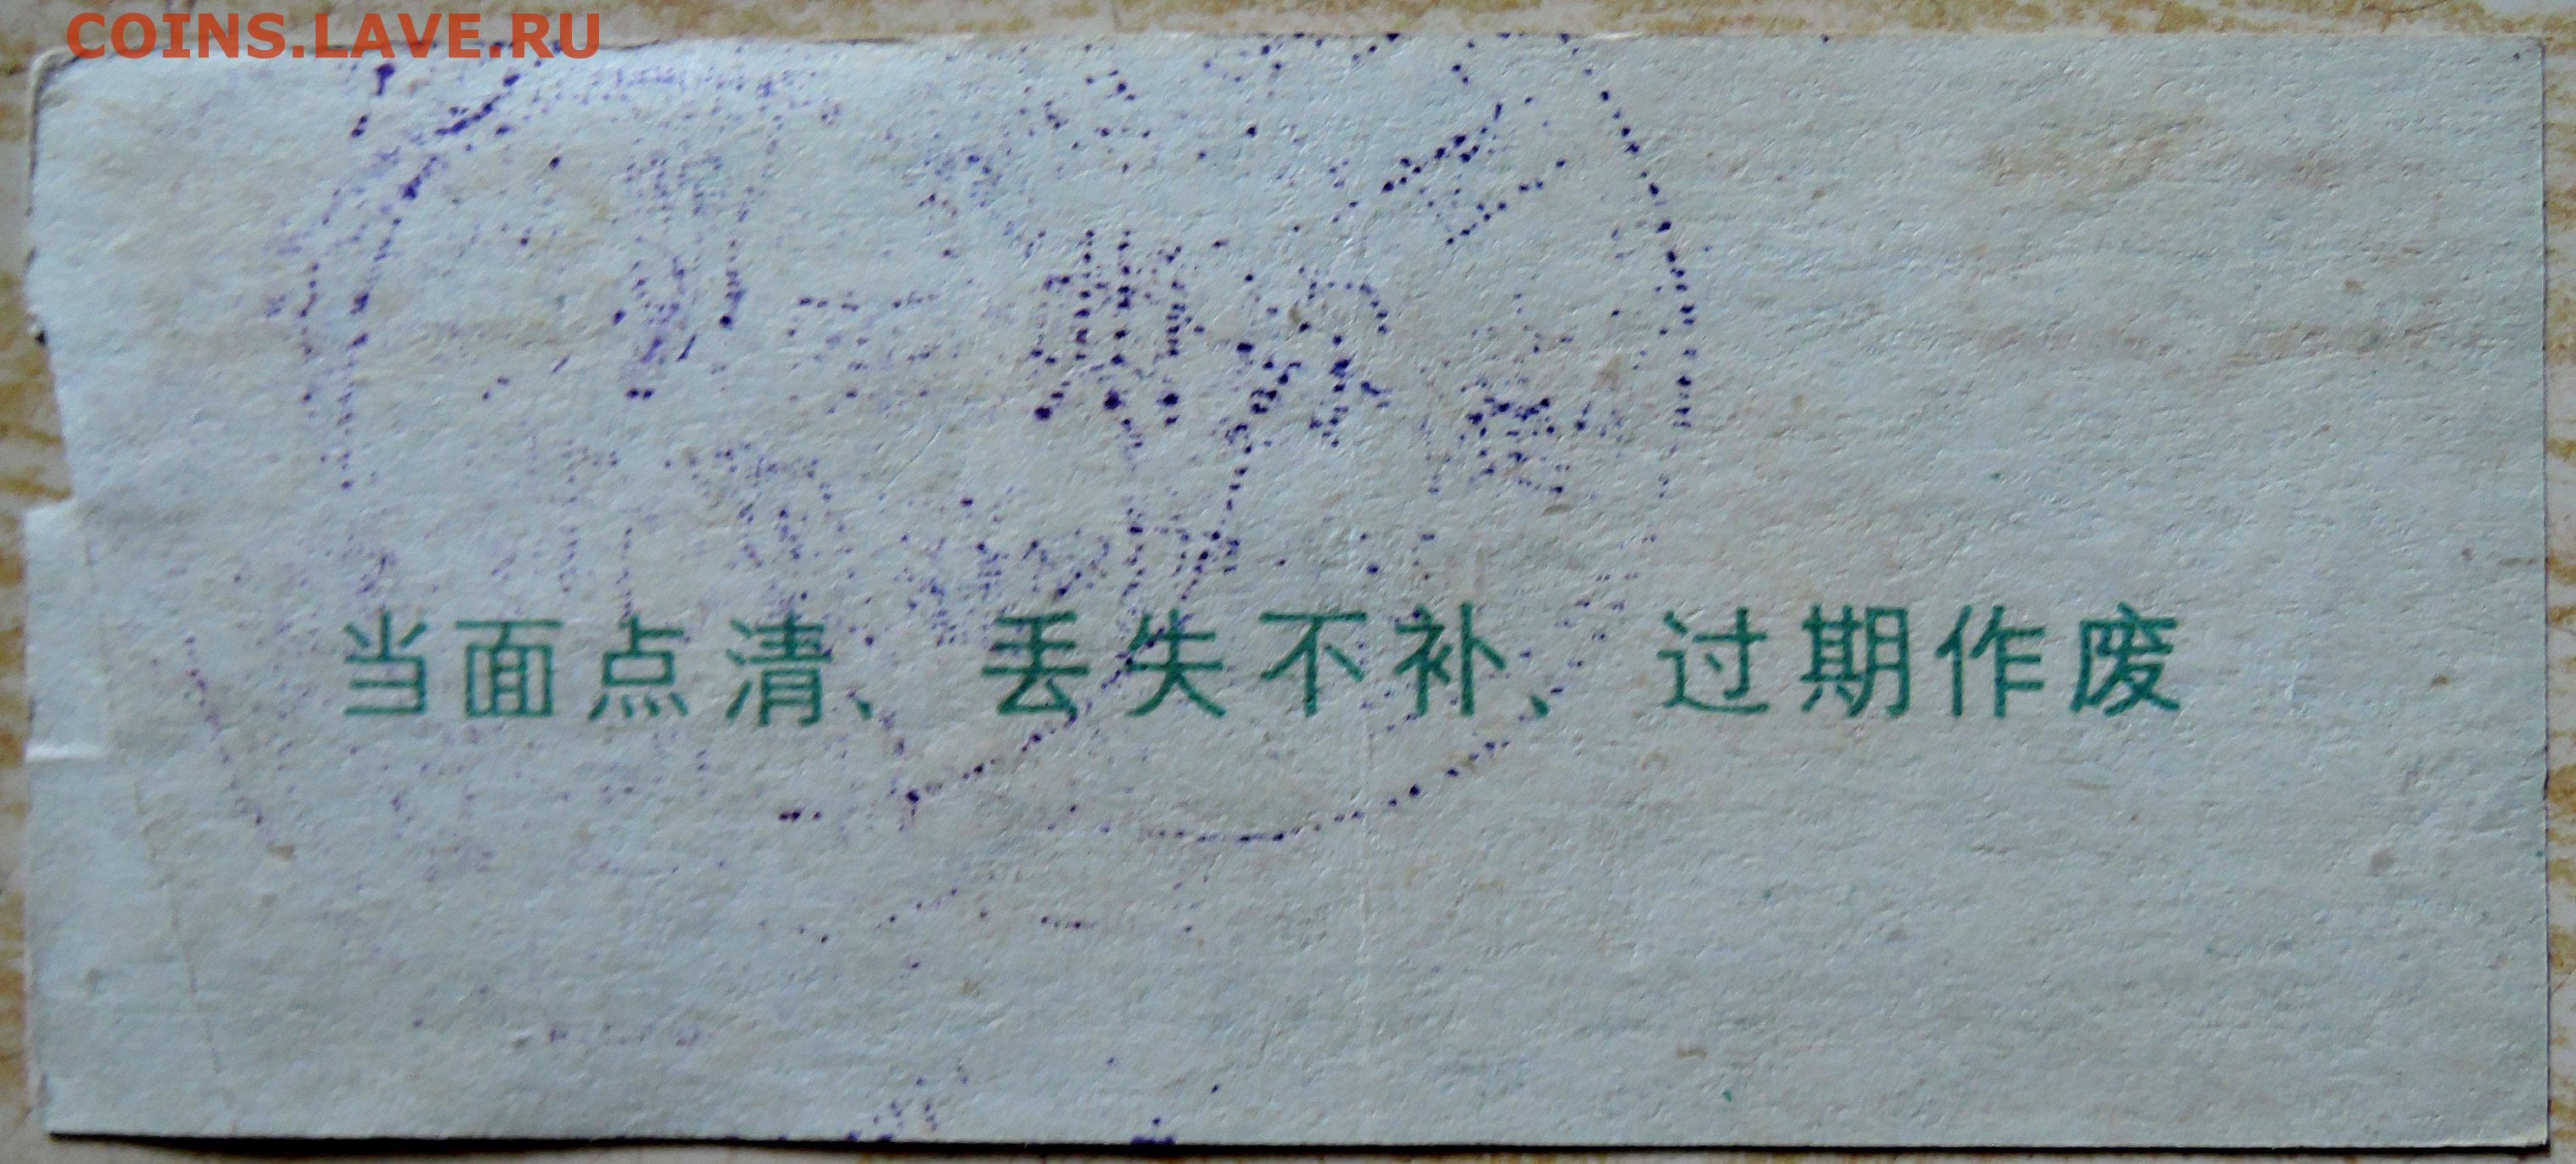 COINS.LAVE.RU
当面点清、丢失不补、过期作废